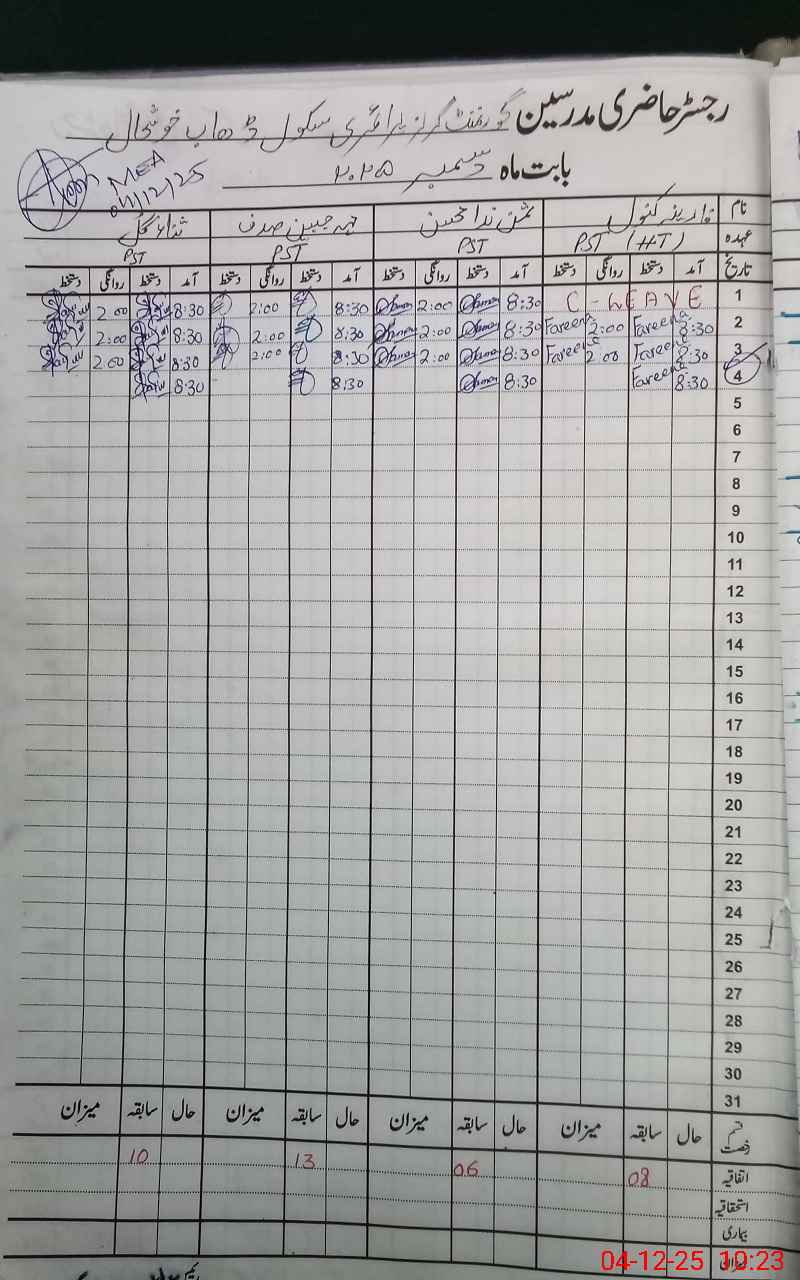 رجسٹر حاضری مدرسین گورنمنٹ گرلز پرائمری سکول ڈھاب خوشحال
بابت ماہ دسمبر ۲۰۲۵
MEA
04/12/25
نام فارینہ کنول ثمن ندا محسن مہ جبین صدف ثناء گل
عہدہ PST (HT) PST PST PST
تاریخ آمد دستخط روانگی دستخط آمد دستخط روانگی دستخط آمد دستخط روانگی دستخط آمد دستخط روانگی دستخط
1 C - LEAVE 8:30 2:00 8:30 2:00 8:30 2:00
2 8:30 Fareena 2:00 Fareena 8:30 2:00 8:30 2:00 8:30 2:00
3 8:30 Fareena 2:00 Fareena 8:30 2:00 8:30 2:00 8:30 2:00
4 8:30 Fareena 8:30 8:30 8:30
5
6
7
8
9
10
11
12
13
14
15
16
17
18
19
20
21
22
23
24
25
26
27
28
29
30
31
قسم رخصت حال سابقہ میزان حال سابقہ میزان حال سابقہ میزان حال سابقہ میزان
اتفاقیہ 08 06 13 10
استحقاقیہ
بیماری
04-12-25 10:23